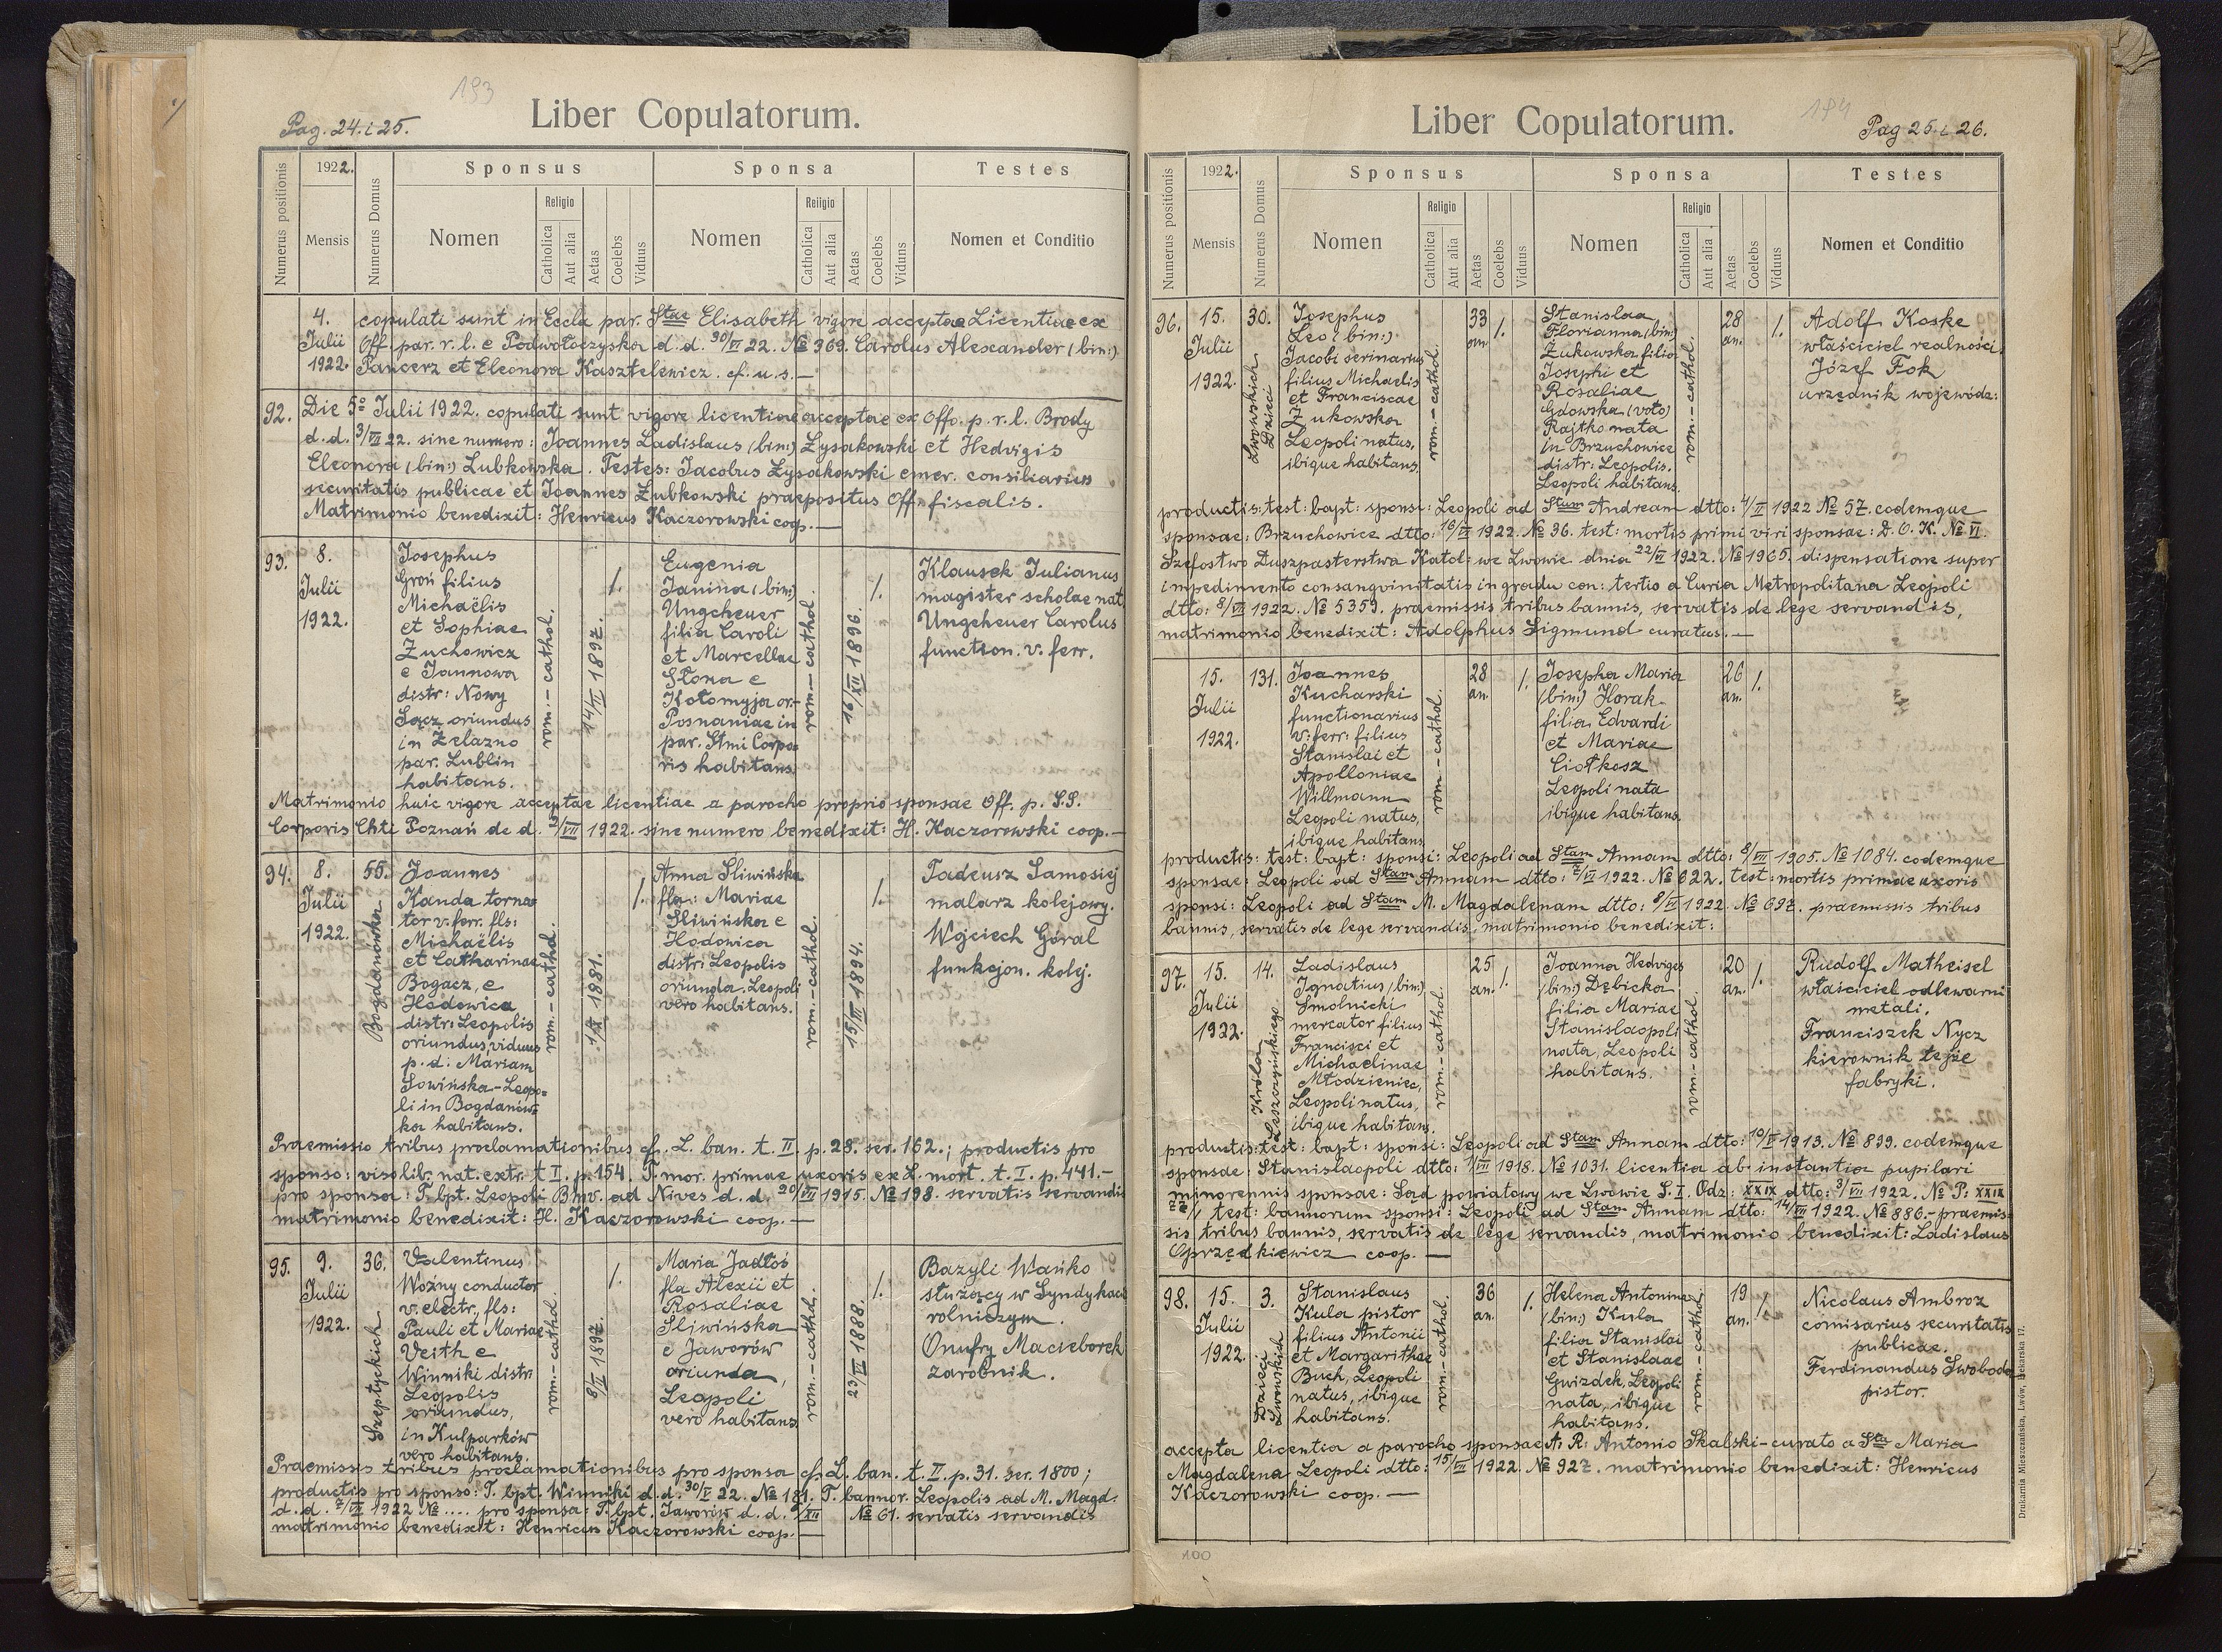 193
Pag. 24. i 25.
Liber Copulatorum.
Numerus positionis
1922.
Mensis
Numerus Domus
Sponsus
Nomen
Religio
Catholica
Aut alia
Aetas
Coelebs
Viduus
Sponsa
Nomen
Religio
Catholica
Aut alia
Aetas
Coelebs
Viduus
Testes
Nomen et Conditio
4. copulati sunt in Eccla par. Stae Elisabeth vigore acceptae Licentiae ex
Julii Off. par. r. l. e Podwołoczyska d. d. 30/VI 22. № 369. Carolus Alexander (bin:)
1922. Pancerz et Eleonora Kasztelewicz. cf. u. s. —
92. Die 5º Julii 1922. copulati sunt vigore licentiae acceptae ex Offo. p. r. l. Brody
d. d. 3/VII 22. sine numero: Joannes Ladislaus (bin:) Łysakowski et Hedvigis
Eleonora (bin:) Lubkowska. Testes: Jacobus Łysakowski emer. consiliarius
securitatis publicae et Joannes Łubkowski praepositus Off. fiscalis.
Matrimonio benedixit: Henricus Kaczorowski coop. —
93.
8.
Julii
1922.
Josephus
Groń filius
Michaëlis
et Sophiae
Zuchowicz
e Jannowa
distr: Nowy
Sącz oriundus
in Żelazno
par. Lublin
habitans.
rom.- cathol.
14/II 1897.
1.
Eugenia
Janina (bin:)
Ungeheuer
filia Caroli
et Marcellae
Słona e
Kołomyja or.-
Posnaniae in
par. Stmi Corpo=
ris habitans
rom.- cathol.
16/XII 1896.
1.
Klausek Julianus
magister scholae nat.
Ungeheuer Carolus
function. v. ferr.
Matrimonio huic vigore acceptae licentiae a parocho proprio sponsae Off. p. S.S.
Corporis Chti Poznań de d. /VII 1922. sine numero benedixit: H. Kaczorowski coop. —
94.
8.
Julii
1922.
55.
Bogdanówka
Joannes
Kanda torna=
tor v. ferr. fls:
Michaëlis
et Catharinae
Bogacz, e
Hodowica
distr: Leopolis
oriundus, viduus
p. d. Mariam
Sowińska - Leopo=
li in Bogdanów=
ka habitans.
rom.- cathol.
1/2 1881.
1.
Anna Sliwińska
fla: Mariae
Sliwińska e
Hodowica
distr: Leopolis
oriunda. Leopoli
vero habitans.
rom.- cathol.
15/III 1894.
1.
Tadeusz Samosiej
malarz kolejowy.
Wojciech Góral
funkcjon. kolej.
Praemissio tribus proclamationibus cf. L. ban. t. II p. 28. ser. 162.; productis pro
sponso: viso lib. nat. extr. t I. p. 154. T. mor. primae uxoris ex L. mort. t. I. p. 441.-
pro sponsa: T. bpt. Leopoli Bmv. ad Nives d. d. 20/VII 1915. № 198. servatis servandis
matrimonio benedixit: H. Kaczorowski coop. —
95.
9.
Julii
1922.
36.
Szeptyckich
Valentinus
Woźny conductor
v. electr., fls:
Pauli et Mariae
Veith e
Winniki distr:
Leopolis
oriundus,
in Kulparków
vero habitans.
rom.- cathol.
8/II 1897.
1.
Maria Jadłoś
fla Alexii et
Rosaliae
Sliwińska
e Jaworów
oriunda,
Leopoli
vero habitans.
rom.- cathol.
23/III 1888.
1.
Bazyli Wańko
służący w Syndykacie
rolniczym.
Onufry Macieborek
zarobnik.
Praemissis tribus proclamationibus pro sponsa cf. L. ban. t. II. p. 31. ser. 1800;
productis pro sponso: T. bpt. Winniki d. d. 30/V 22. № 181. T. bannor. Leopolis ad M. Magd.
d. d. 7/VII 1922 № .... pro sponsa: T. bpt. Jaworów d. d. /XII № 61. servatis servandis
matrimonio benedixit: Henricus Kaczorowski coop. —
194
Liber Copulatorum.
Pag 25. i 26.
Numerus positionis
1922.
Mensis
Numerus Domus
Sponsus
Nomen
Religio
Catholica
Aut alia
Aetas
Coelebs
Viduus
Sponsa
Nomen
Religio
Catholica
Aut alia
Aetas
Coelebs
Viduus
Testes
Nomen et Conditio
96.
15.
Julii
1922.
30.
Lwowskich
Dzieci
Josephus
Leo (bin:)
Jacobi serinarius
filius Michaelis
et Franciscae
Żukowska
Leopoli natus,
ibique habitans.
rom.- cathol.
33
an.
1.
Stanislaa
Florianna (bin:)
Żukowska filia
Josephi et
Rosaliae
Gdowska (voto)
Rajtko nata
in Brzuchowice
distr: Leopolis.
Leopoli habitans.
rom.- cathol.
28
an.
1.
Adolf Koske
właściciel realności.
Józef Fok
urzędnik wojewódz:
productis: test: bapt: sponsi: Leopoli ad Stum Andream dtto: 4/II 1922 № 57. eodemque
sponsae: Brzuchowice dtto: 16/VI 1922. № 36. test: mortis primi viri sponsae: D. O. K. № VI.
Szefostwo Duszpasterstwa Katol: we Lwowie dnia 22/VI 1922. № 1965. dispensatione super
impedimento consangvinitatis in gradu con: tertio a Curia Metropolitana Leopoli
dtto: 8/VII 1922. № 5359. praemissis tribus bannis, servatis de lege servandis,
matrimonio benedixit: Adolphus Sigmund curatus. —
15.
Julii
1922.
131.
Joannes
Kucharski
functionarius
v: ferr: filius
Stanislai et
Apolloniae
Willmann
Leopoli natus,
ibique habitans.
rom.- cathol.
28
an.
1.
Josepha Maria
(bin:) Horak
filia Edvardi
et Mariae
Ciołkosz
Leopoli nata
ibique habitans.
26
an.
1.
productis: test: bapt: sponsi: Leopoli ad Stam Annam dtto: 8/VII 1905. № 1084. eodemque
sponsae: Leopoli ad Stam Annam dtto: 7/VI 1922. № 622. test: mortis primae uxoris
sponsi: Leopoli ad Stam M. Magdalenam dtto: 8/VI 1922. № 697. praemissis tribus
bannis, servatis de lege servandis, matrimonio benedixit:
97.
15.
Julii
1922.
14.
Króla
Leszczyńskiego
Ladislaus
Ignatius (bin:)
Smolnicki
mercator filius
Francisci et
Michaelinae
Młodzieniec,
Leopoli natus,
ibique habitans.
rom.- cathol.
25
an.
1.
Joanna Hedviges
(bin:) Dębicka
filia Mariae
Stanislaopoli
nata, Leopoli
habitans.
rom.- cathol.
20
an.
1.
Rudolf Matheisel
właściciel odlewarni
metali.
Franciszek Nycz
kierownik tejże
fabryki.
productis: test: bapt: sponsi: Leopoli ad Stam Annam dtto: 10/V 1913. № 839. eodemque
sponsae: Stanislaopoli dtto: 1/VII 1918. № 1031. licentia ab instantia pupilari
minorennis sponsae: Sąd powiatowy we Lwowie S. I. Odz: XXIX dtto: 3/VII 1922. № P: XXIX
test: bannorum sponsi: Leopoli ad Stam Annam dtto: 14/VII 1922. № 886.- praemis=
sis tribus bannis, servatis de lege servandis, matrimonio benedixit: Ladislaus
Oprzędkiewicz coop. —
98.
15.
Julii
1922.
3.
Dzieci
Lwowskich
Stanislaus
Kula pistor
filius Antonii
et Margarithae
Buch, Leopoli
natus, ibique
habitans.
rom.- cathol.
36
an.
1.
Helena Antonina
(bin:) Kula
filia Stanislai
et Stanislaae
Gwizdek, Leopoli
nata, ibique
habitans.
rom.- cathol.
19
an.
1.
Nicolaus Ambroz
comisarius securitatis
publicae.
Ferdinandus Swoboda
pistor.
accepta licentia a parocho sponsae A. R: Antonio Skalski - curato a Sta Maria
Magdalena Leopoli dtto: 15/VII 1922. № 927. matrimonio benedixit: Henricus
Kaczorowski coop. —
100
Drukarnia Mieszczańska, Lwów, Piekarska 17.